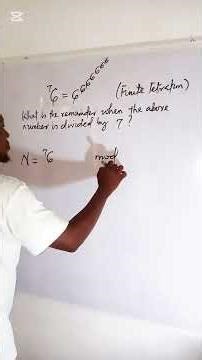 ⁷6 = 6^6^6^6^6^6^6 (Finite Tetration)
What is the remainder when the above
number is divided by 7?
N = ⁷6 mod